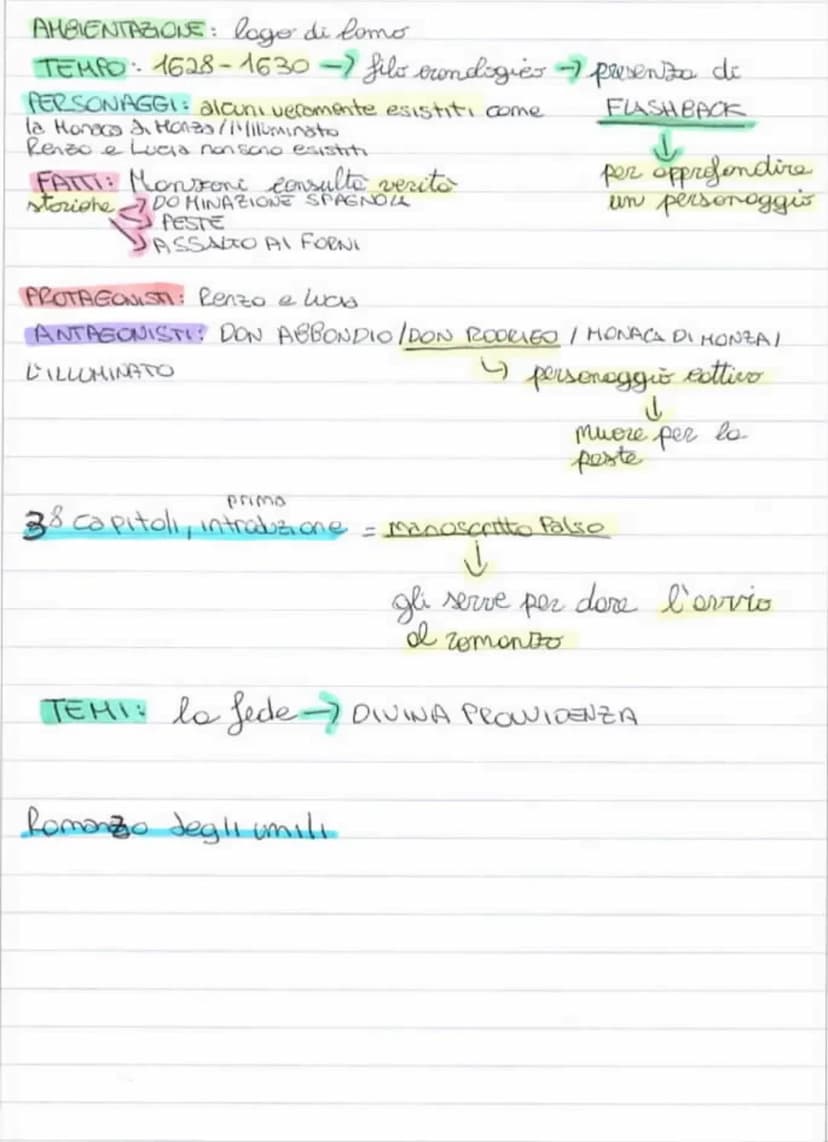 AMBIENTAZIONE: lago di Como
TEMPO: 1628-1630 → filo cronologico → presenza di
FLASHBACK
↓
per approfondire
un personaggio
PERSONAGGI: alcuni veramente esistiti come
la Monaca di Monza/l'illuminato
Renzo e Lucia non sono esistiti
FATTI: Manzoni consulta verità
storiche → DOMINAZIONE SPAGNOLA
→ PESTE
→ ASSALTO AI FORNI
PROTAGONISTI: Renzo e Lucia
ANTAGONISTI: DON ABBONDIO/DON RODRIGO / MONACA DI MONZA/
L'ILLUMINATO
↳ personaggio cattivo
↓
muore per la
peste
prima
38 capitoli, introduzione = manoscritto falso
↓
gli serve per dare l'avvio
al romanzo
TEMI: la fede → DIVINA PROVVIDENZA
Romanzo degli umili